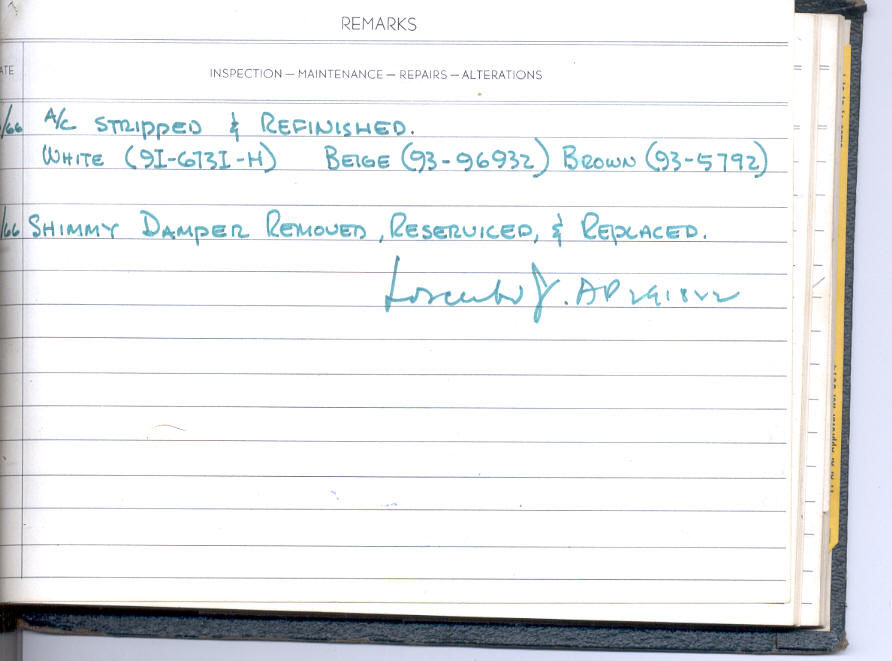 REMARKS
ATE
INSPECTION — MAINTENANCE — REPAIRS — ALTERATIONS
/66 A/C STRIPPED & REFINISHED.
WHITE (91-6731-H) BEIGE (93-96932) BROWN (93-5792)
/66 SHIMMY DAMPER REMOVED, RESERVICED, & REPLACED.
AP